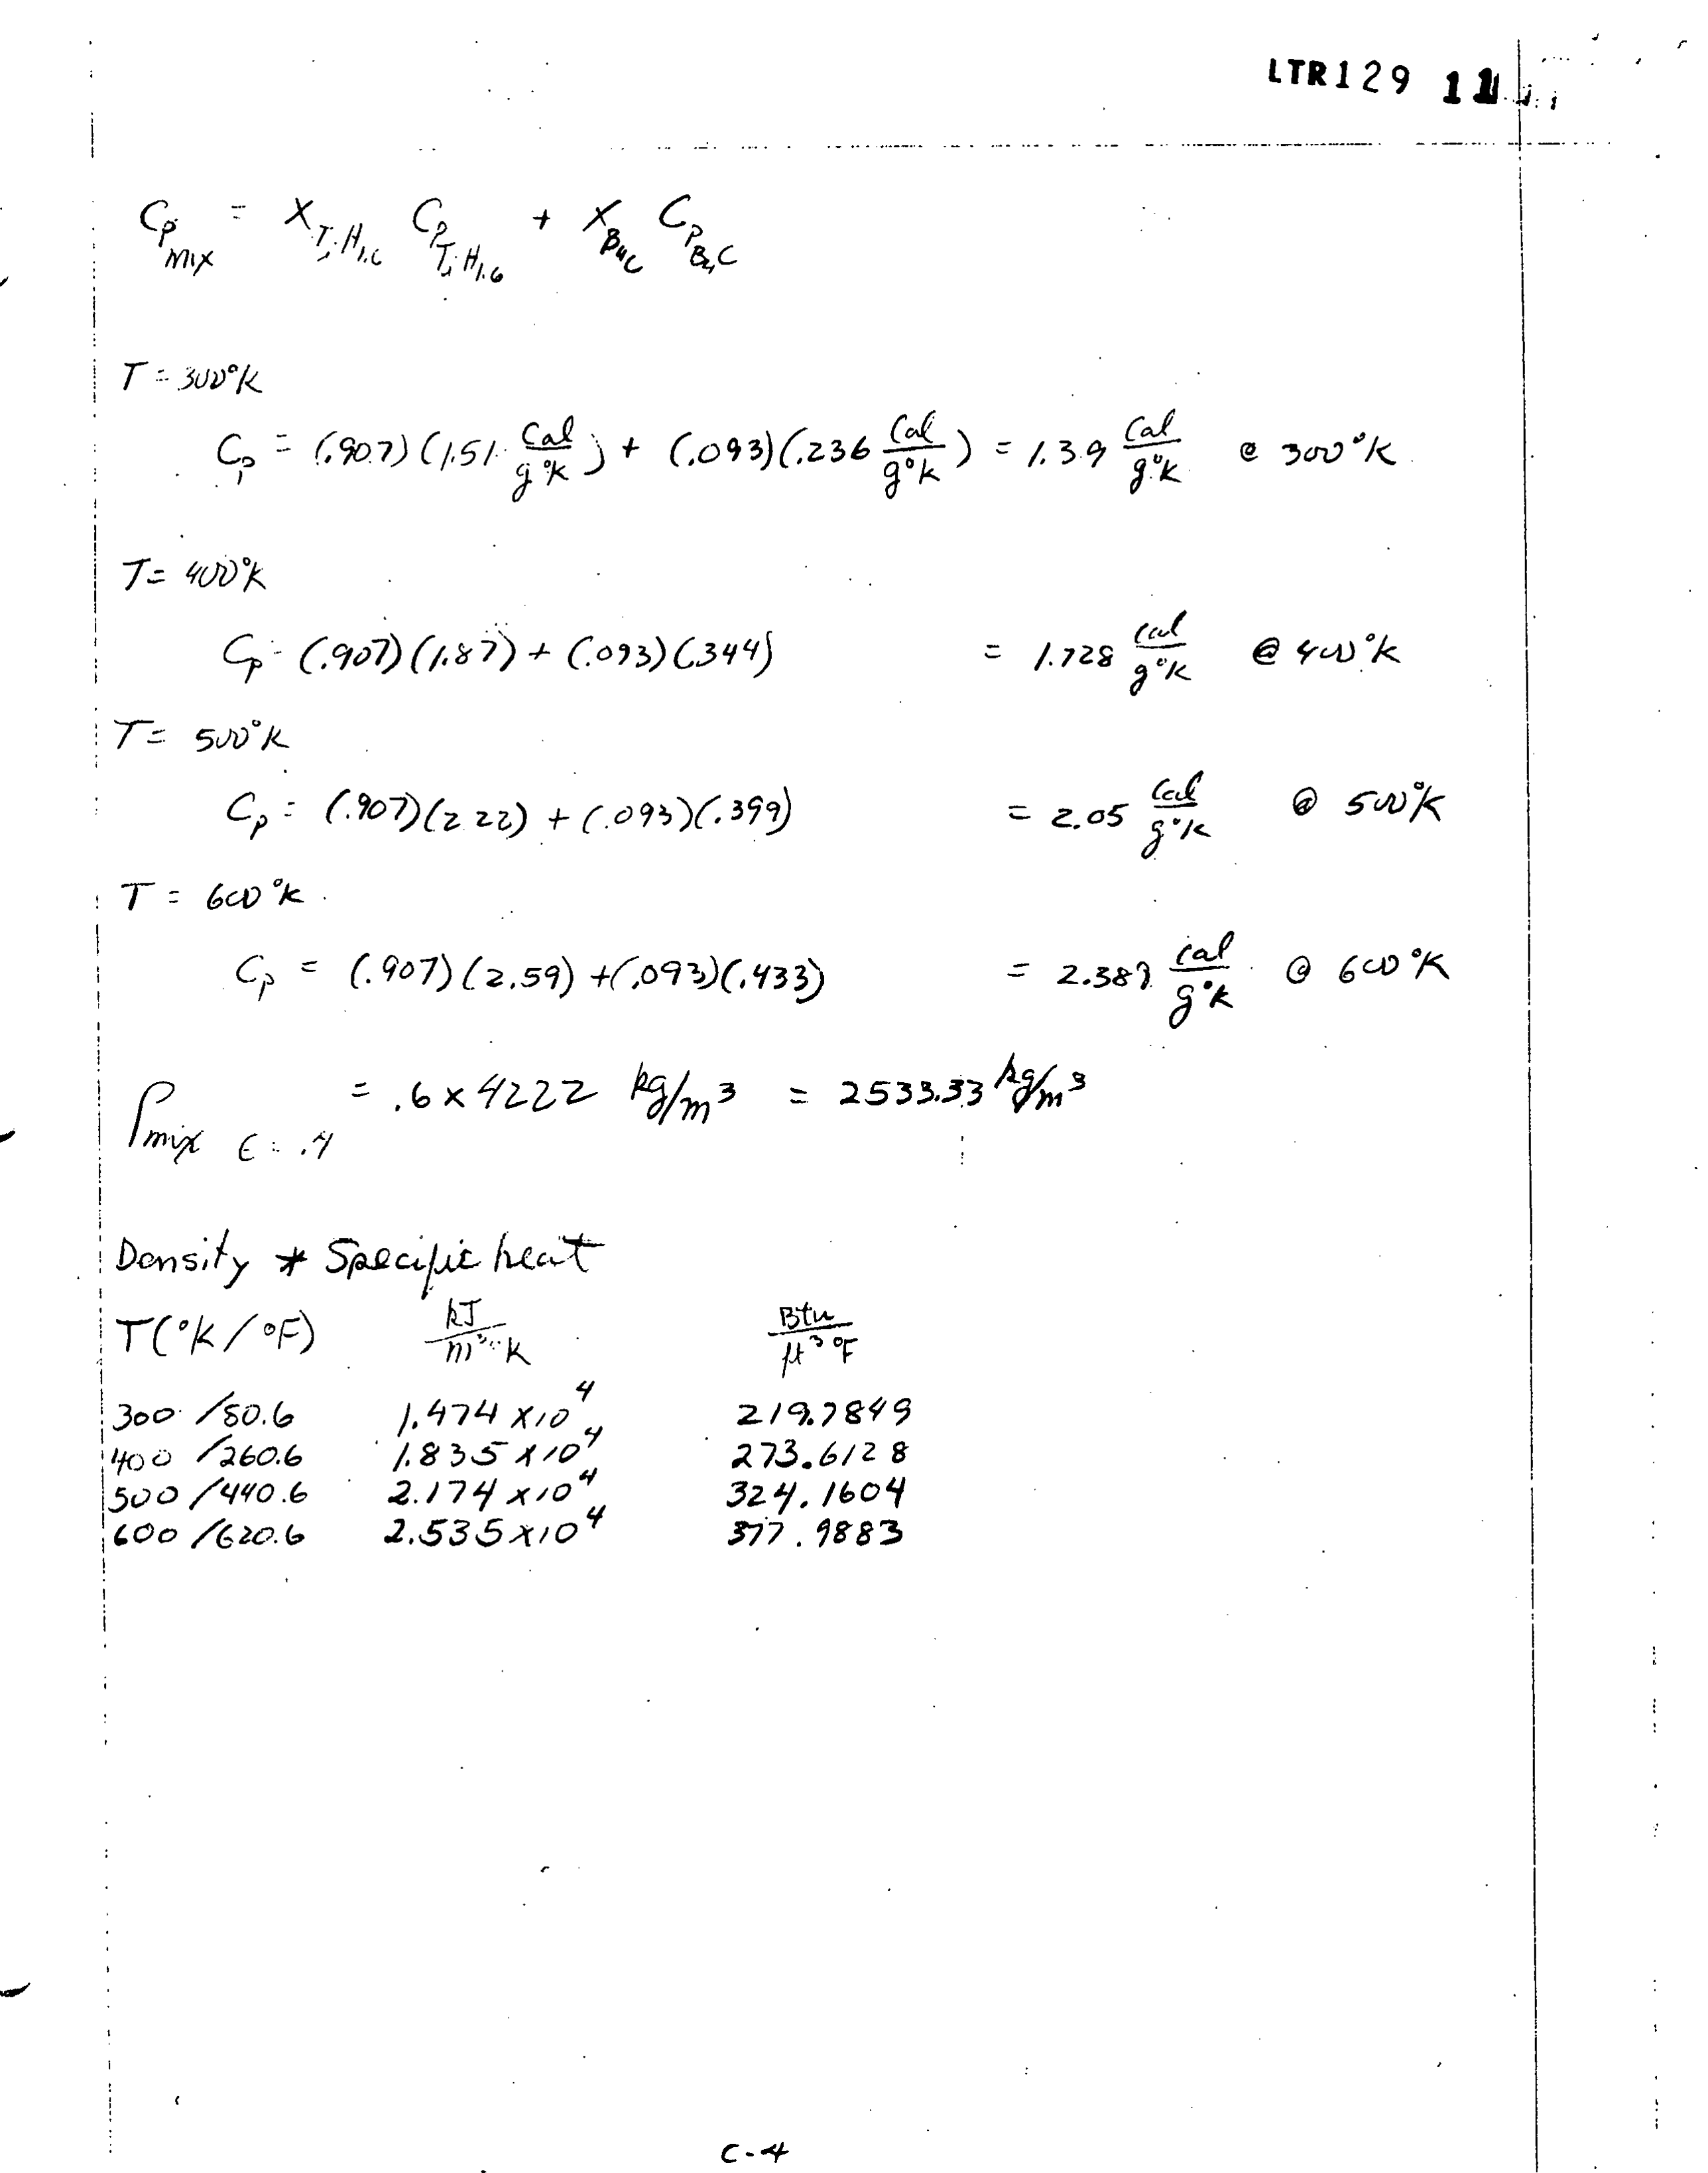 LTR129 11
Cp mix = X TiH1.6 Cp TiH1.6 + X B4C Cp B4C
T = 300°K
Cp = (.907)(1.51 Cal/g°K) + (.093)(.236 Cal/g°K) = 1.39 Cal/g°K @ 300°K
T = 400°K
Cp = (.907)(1.87) + (.093)(.344) = 1.728 Cal/g°K @ 400°K
T = 500°K
Cp = (.907)(2.22) + (.093)(.399) = 2.05 Cal/g°K @ 500°K
T = 600°K
Cp = (.907)(2.59) + (.093)(.433) = 2.389 cal/g°K @ 600°K
ρ mix ϵ = .4 = .6 x 4222 kg/m³ = 2533.33 kg/m³
Density * Specific heat
T(°K/°F) kJ/m³°K Btu/ft³°F
300 /80.6 1.474 x10⁴ 219.7849
400 /260.6 1.835 x10⁴ 273.6128
500 /440.6 2.174 x10⁴ 324.1604
600 /620.6 2.535 x10⁴ 377.9883
C-4